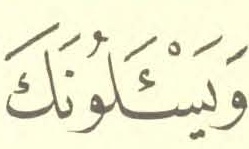 وَيَسْـَٔلُونَكَ